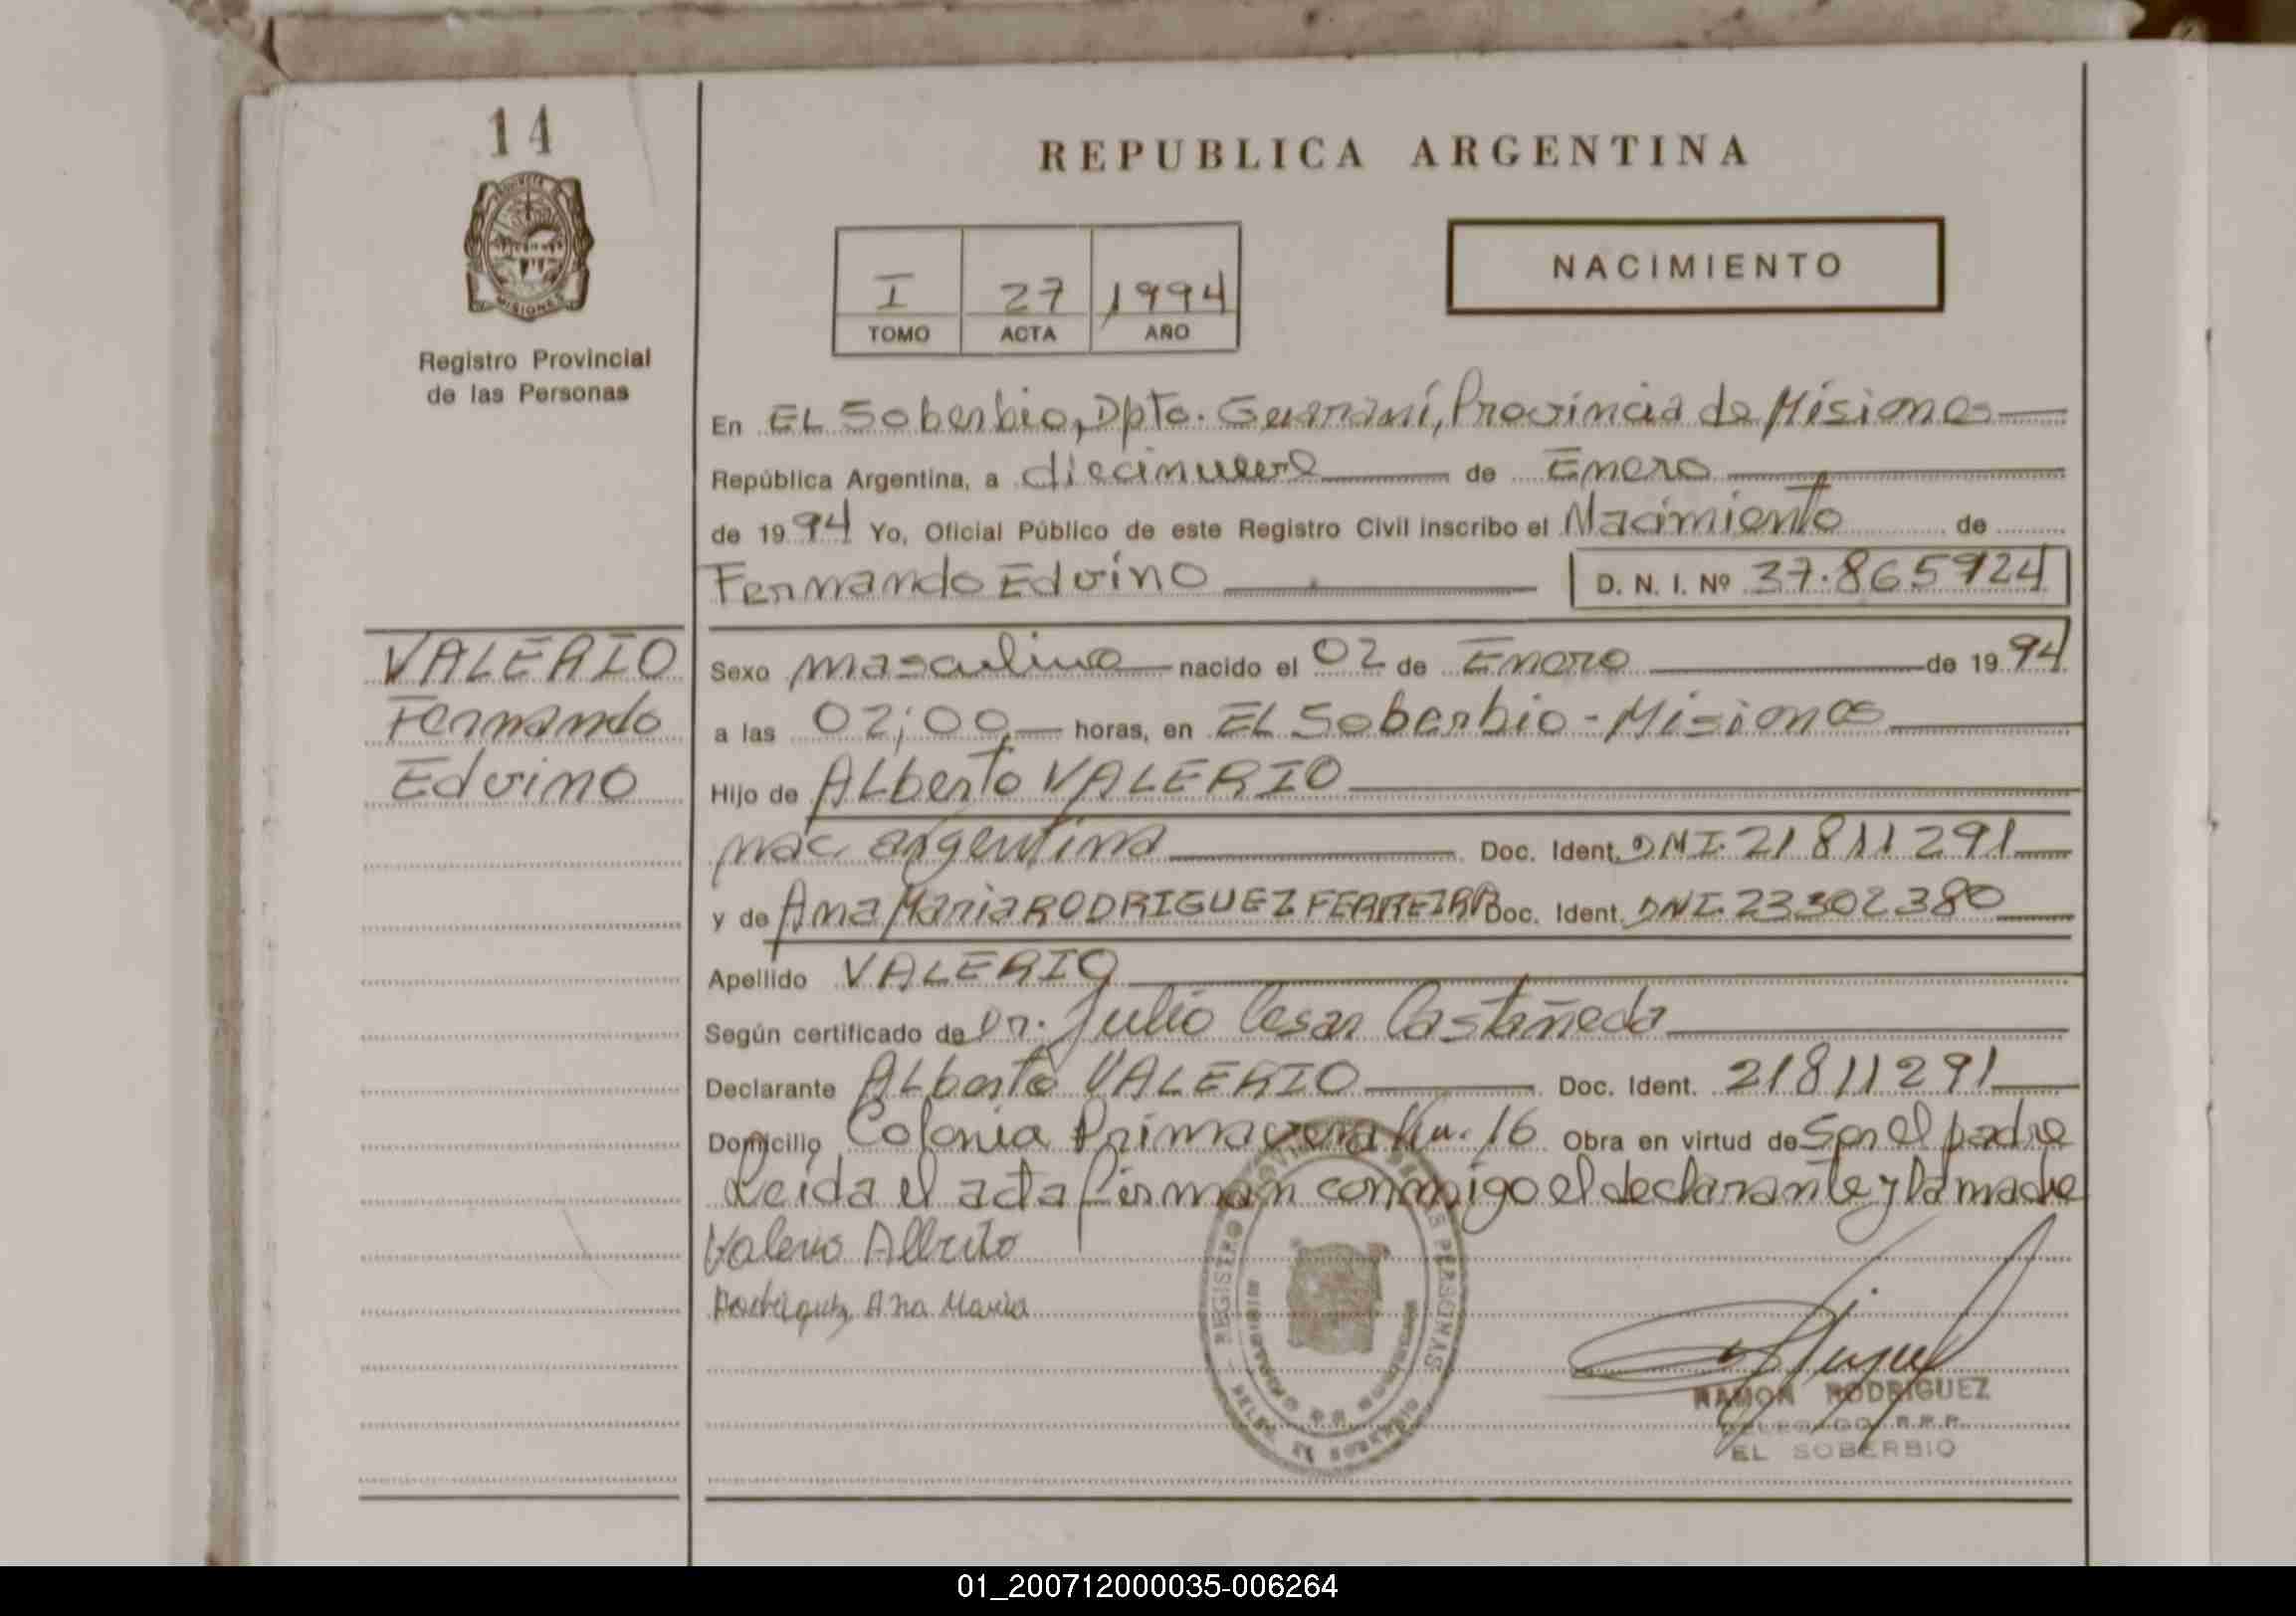 14
PROVINCIA
MISIONES
Registro Provincial
de las Personas
REPUBLICA ARGENTINA
I 27 1994
TOMO ACTA AÑO
NACIMIENTO
En EL Soberbio, Dpto. Guaraní, Provincia de Misiones
República Argentina, a diecinueve de Enero
de 1994 Yo, Oficial Público de este Registro Civil inscribo el Nacimiento de
Fernando Edvino D. N. I. Nº 37.865924
VALERIO
Fernando
Edvino
Sexo masculino nacido el 02 de Enero de 1994
a las 02;00 horas, en EL Soberbio - Misiones
Hijo de ALberto VALERIO
nac argentina Doc. Ident. DNI. 21811291
y de Ana Maria RODRIGUEZ FERREIRA Doc. Ident. DNI. 23302380
Apellido VALERIO
Según certificado de Dr. Julio Cesar Castañeda
Declarante ALberto VALERIO Doc. Ident. 21811291
Domicilio Colonia Primavera Km. 16 Obra en virtud de Ser el padre
Leida el acta firman conmigo el declarante y la madre
Valerio Alberto
Rodriguez, Ana Maria
REGISTRO PROVINCIAL DE LAS PERSONAS
EL SOBERBIO
RAMON RODRIGUEZ
DELEGADO R.P.P.
EL SOBERBIO
01_200712000035-006264